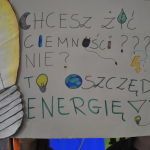 CHCESZ ŻYĆ
CIEMNOŚCI???
NIE?
TO OSZCZĘD
ENERGIĘ